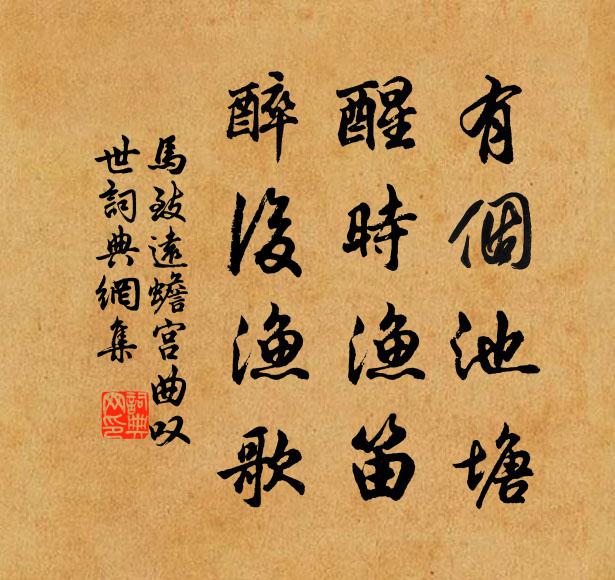 有個池塘
醒時漁笛
醉後漁歌
馬致遠蟾宮曲叹
世詞典網集
詞典网印